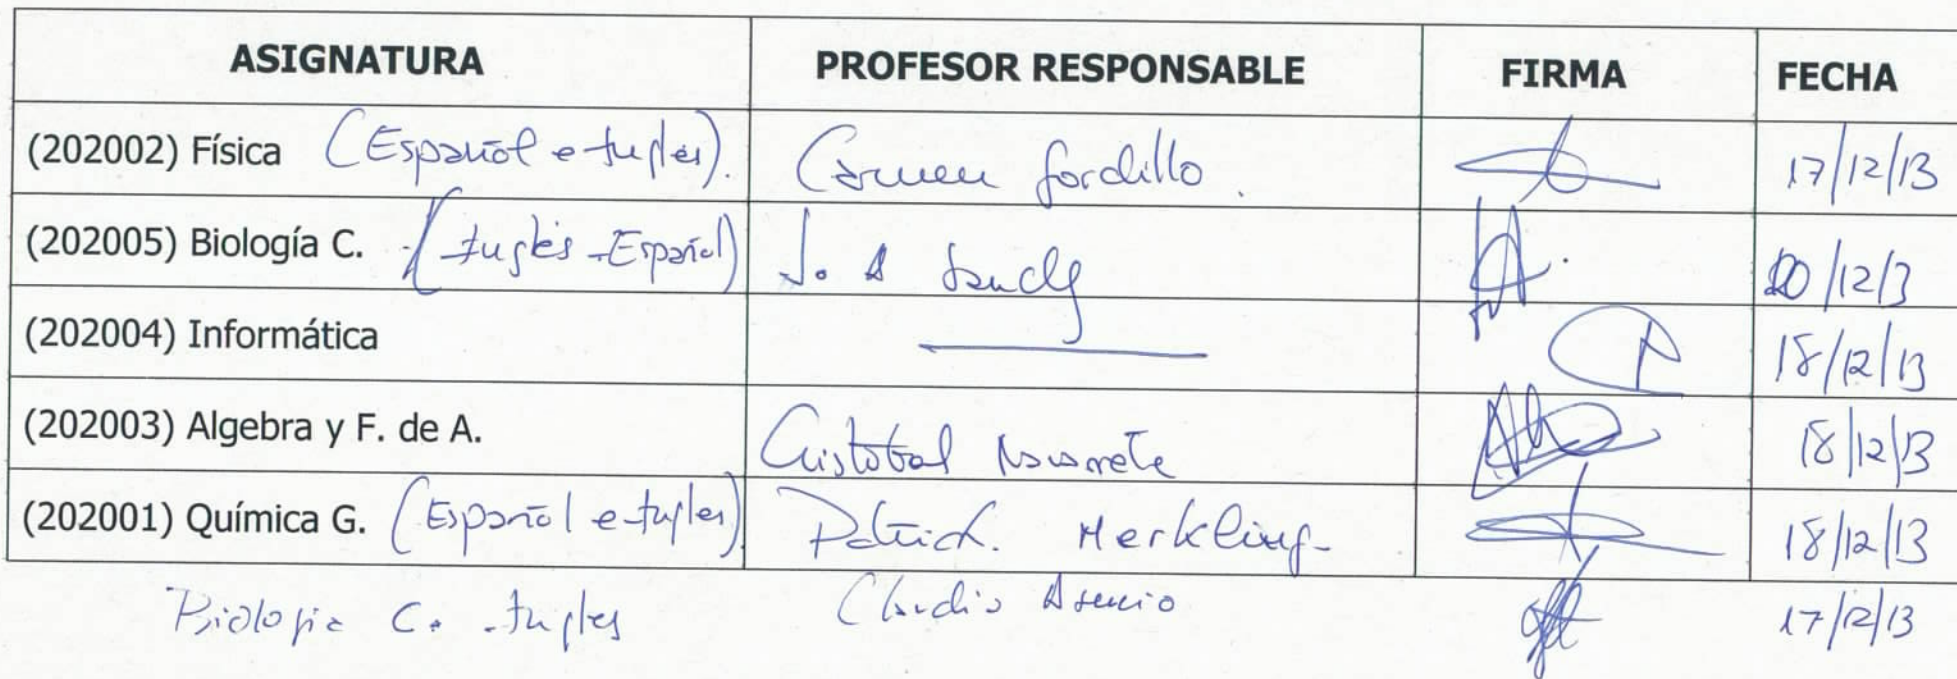 ASIGNATURA PROFESOR RESPONSABLE FIRMA FECHA
(202002) Física (Español e Ingles). Carmen Gordillo. 17/12/13
(202005) Biología C. (Inglés - Español) J. A 20/12/3
(202004) Informática 18/12/13
(202003) Algebra y F. de A. Cristobal Navarrete 18/12/13
(202001) Química G. (Español e Ingles) Patrick. Merkling 18/12/13
Biologia C. Ingles Claudio Asencio 17/12/13